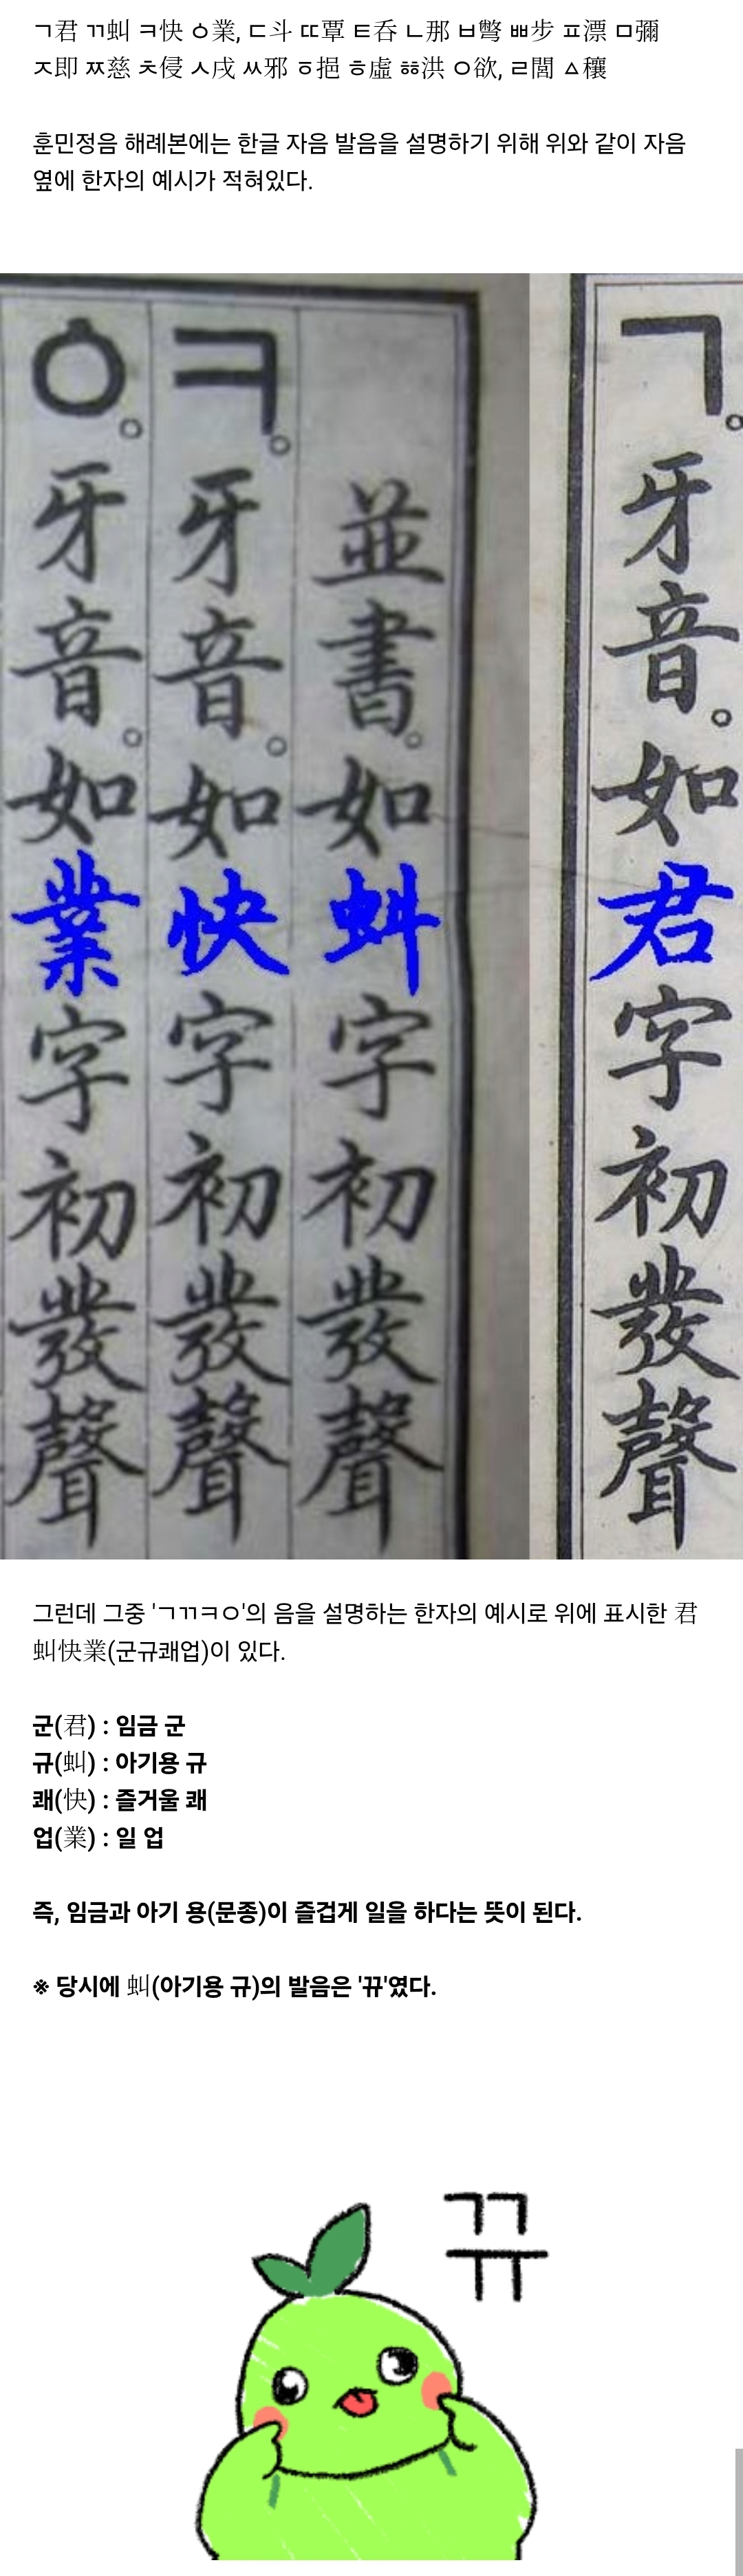 ㄱ君 ㄲ虯 ㅋ快 ㆁ業, ㄷ斗 ㄸ覃 ㅌ呑 ㄴ那 ㅂ彆 ㅃ步 ㅍ漂 ㅁ彌
ㅈ即 ㅉ慈 ㅊ侵 ㅅ戌 ㅆ邪 ㆆ挹 ㅎ虛 ㆅ洪 ㅇ欲, ㄹ閭 ㅿ穰
훈민정음 해례본에는 한글 자음 발음을 설명하기 위해 위와 같이 자음
옆에 한자의 예시가 적혀있다.
ㄱ。牙音。如君字初發聲
並書。如虯字初發聲
ㅋ。牙音。如快字初發聲
ㆁ。牙音。如業字初發聲
그런데 그중 'ㄱㄲㅋㅇ'의 음을 설명하는 한자의 예시로 위에 표시한 君
虯快業(군규쾌업)이 있다.
군(君) : 임금 군
규(虯) : 아기용 규
쾌(快) : 즐거울 쾌
업(業) : 일 업
즉, 임금과 아기 용(문종)이 즐겁게 일을 하다는 뜻이 된다.
※ 당시에 虯(아기용 규)의 발음은 '뀨'였다.
뀨